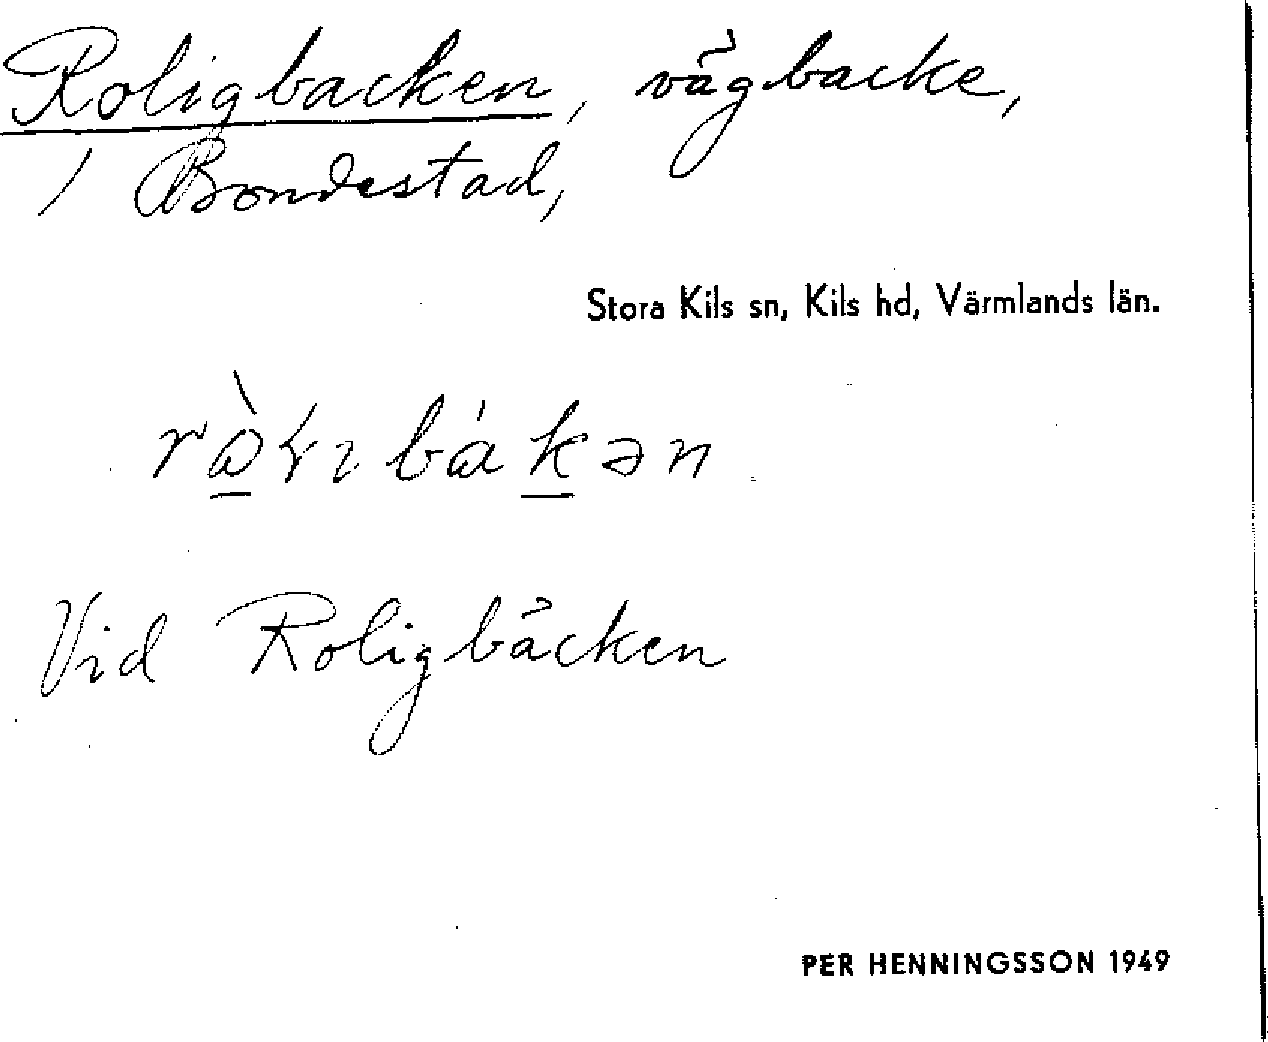 Roligbacken, vägbacke,
/ Bondestad,
Stora Kils sn, Kils hd, Värmlands län.
Vid Roligbäcken
PER HENNINGSSON 1949